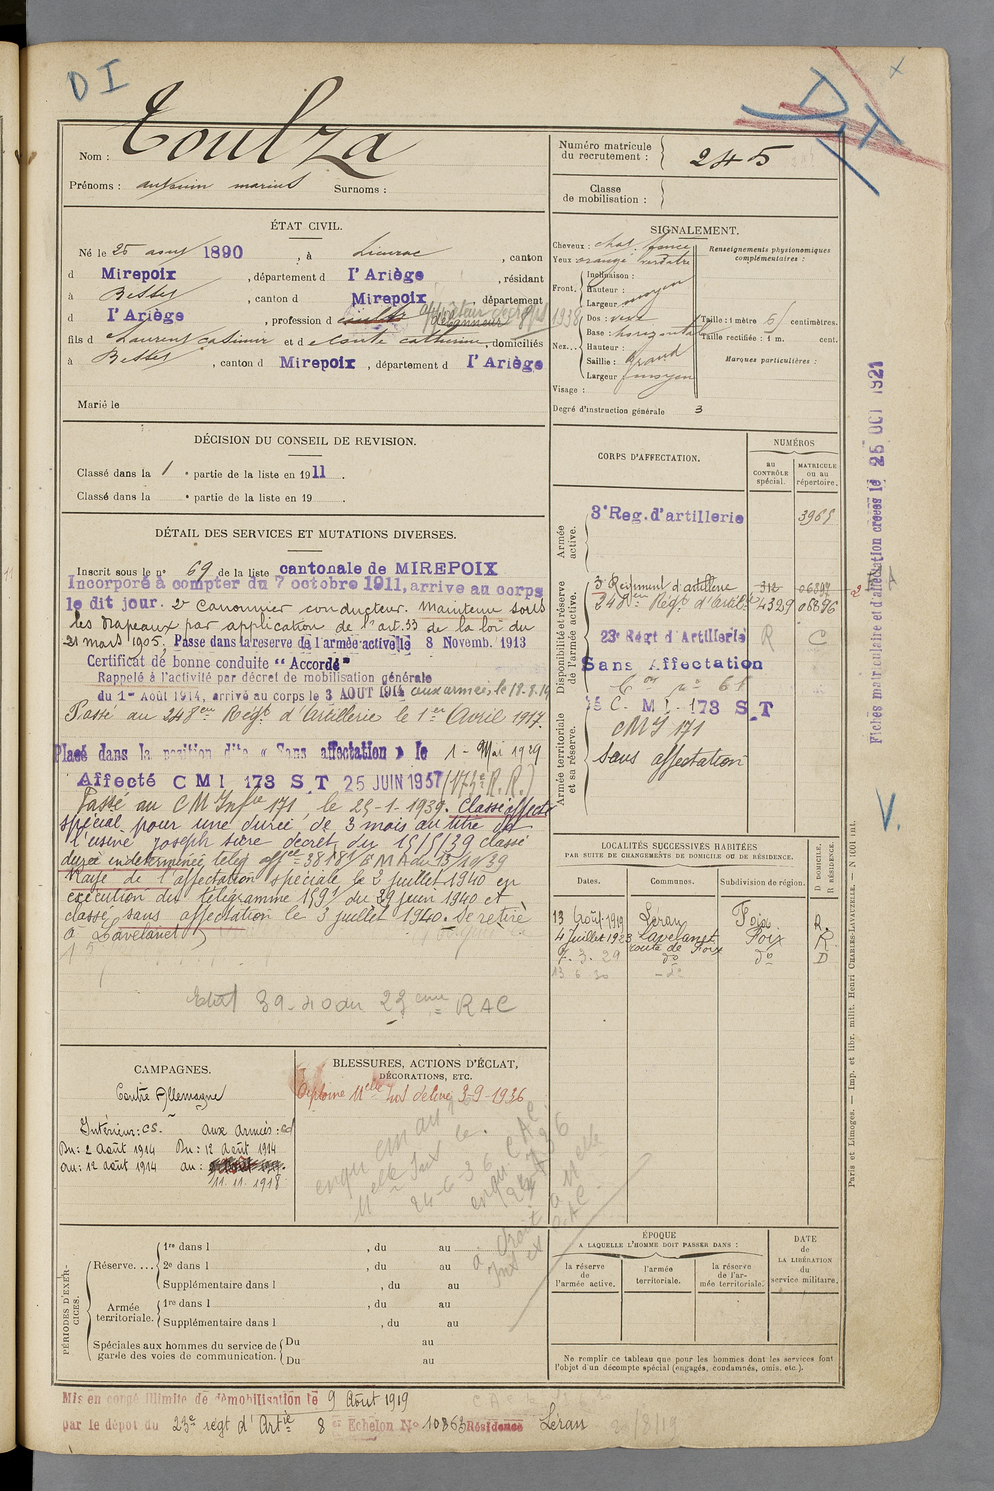 D I
D.I
Nom : Toulza
Prénoms : antonin marius Surnoms :
Numéro matricule du recrutement : 245
Classe de mobilisation :
ÉTAT CIVIL.
Né le 25 aout 1890, à Lieurac, canton
d Mirepoix, département d l'Ariège, résidant
à Besset, canton d Mirepoix, département
d l'Ariège, profession d
fils d Laurent casimir et d e Conte catherine, domiciliés
à Besset, canton d Mirepoix, département d l'Ariège
Marié le
SIGNALEMENT.
Cheveux : chat. foncé
Yeux orangé verdatre
Front. Inclinaison :
Hauteur :
Largeur moyen
Nez... Dos : vexe
Base : horizontale
Hauteur :
Saillie : grand
Largeur moyen
Visage :
Renseignements physionomiques complémentaires :
Taille : 1 mètre 61 centimètres.
Taille rectifiée : 1 m. cent.
Marques particulières :
Degré d'instruction générale 3
1938
DÉCISION DU CONSEIL DE REVISION.
Classé dans la 1 e partie de la liste en 1911.
Classé dans la e partie de la liste en 19 .
DÉTAIL DES SERVICES ET MUTATIONS DIVERSES.
Inscrit sous le n° 69 de la liste cantonale de MIREPOIX
Incorporé à compter du 7 octobre 1911, arrive au corps
le dit jour. 2e Canonnier conducteur. Maintenu sous
les drapeaux par application de l'art. 33 de la loi du
21 mars 1905. Passé dans la réserve de l'armée active le 8 Novemb. 1913
Certificat de bonne conduite "Accordé"
Rappelé à l'activité par décret de mobilisation générale
du 1er Août 1914, arrivé au corps le 3 AOUT 1914 aux armées le 12-8-14
Passé au 248eme Régt d'Artillerie le 1er Avril 1917.
Placé dans la position dite « Sans affectation » le 1- Mai 1929
Affecté C M I 173 S.T 25 JUIN 1937 (173e R.R.)
Passé au CM Infie 171, le 25-1-1939. Classé affecté
spécial pour une durée de 3 mois au titre de
l'usine Joseph Sicre décret du 15/5/39 classé
durée indeterminée teleg offiel 38181/EMA du 13/10/39
Rayé de l'affectation spéciale le 2 juillet 1940 en
exécution du télégramme 1591 du 29 juin 1940 et
classé sans affectation le 3 juillet 1940. Se retire
à Lavelanet
Etat 39-40 du 23eme RAC
CORPS D'AFFECTATION.
NUMÉROS
au CONTRÔLE spécial.
MATRICULE ou au répertoire.
Armée active.
3e Reg. d'artillerie 3965
Disponibilité et réserve de l'armée active.
3e Régiment d'artillerie 312 06397
248em Régt d'Artil. 4329 06896
23e Régt d'Artillerie R C
Sans Affectation
Armée territoriale et sa réserve.
C. M I 173 S T
CMI 171
Sans affectation
Fiches matriculaire et d'affectation créées le 25 OCT 1921
V.
LOCALITÉS SUCCESSIVES HABITÉES
PAR SUITE DE CHANGEMENTS DE DOMICILE OU DE RÉSIDENCE.
Dates. Communes. Subdivision de région. D DOMICILE, R RÉSIDENCE.
13 Août 1919 Léran Foix R.
4 Juillet 1923 Lavelanet Foix R
7. 3. 29 route de Foix do D
13 6 30 - do
CAMPAGNES.
Contre Allemagne
Intérieur : CS. aux armées : CD
Du : 2 août 1914 Du : 12 août 1914
au : 12 août 1914 au :
11. 11. 1918
BLESSURES, ACTIONS D'ÉCLAT,
DÉCORATIONS, ETC.
Diplome Melle 3-9-1936
24-6-36
PÉRIODES D'EXERCICES.
Réserve.... 1re dans l , du au
2e dans l , du au
Supplémentaire dans l , du au
Armée territoriale. 1re dans l , du au
Supplémentaire dans l , du au
Spéciales aux hommes du service de garde des voies de communication. Du au
Du au
ÉPOQUE
A LAQUELLE L'HOMME DOIT PASSER DANS :
la réserve de l'armée active.
l'armée territoriale.
la réserve de l'armée territoriale.
DATE DE LA LIBÉRATION du service militaire.
Ne remplir ce tableau que pour les hommes dont les services font l'objet d'un décompte spécial (engagés, condamnés, omis, etc.).
Paris et Limoges. — Imp. et libr. milit. Henri CHARLES-LAVAUZELLE. — N. 1001 int.
Mis en congé illimité de démobilisation le 9 Août 1919
par le dépôt du 23e régt d'Artie 8e Echelon N° 10863 Résidence Léran